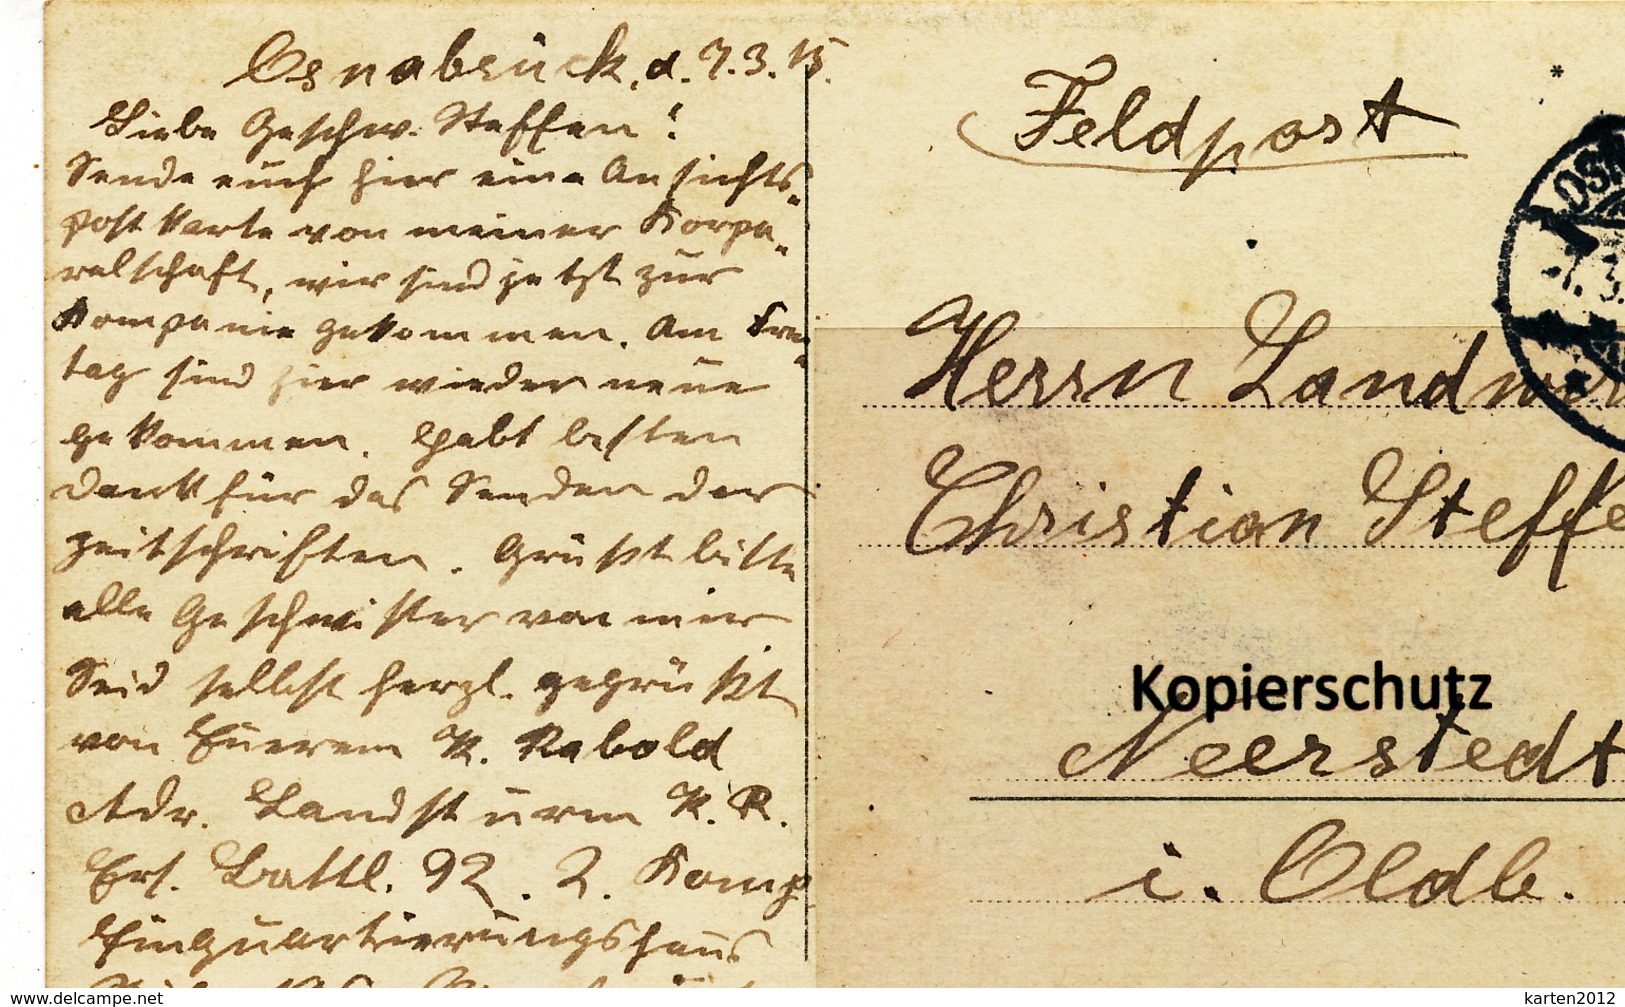 Osnabrück, d. 7.3.15.
Liebe Geschw. Steffen!
Sende euch hier eine Ansichts-
postkarte von meiner Korpo-
ralschaft, wir sind jetzt zur
Kompanie gekommen. Am Frei-
tag sind hier wieder neue
gekommen. Habt besten
Dank für das Senden der
Zeitschriften. Grüßt bitte
alle Geschwister von mir
Seid selbst herzl. gegrüßt
von Euerem K. Rabold
Adr. Landsturm K. R.
Ers. Battl. 92. 2. Komp
Einquartierungshaus
Feldpost
*
OSN
-7.3.
Herrn Landwir
Christian Steffe
Kopierschutz
Neerstedt
i. Oldb.
www.delcampe.net
karten2012